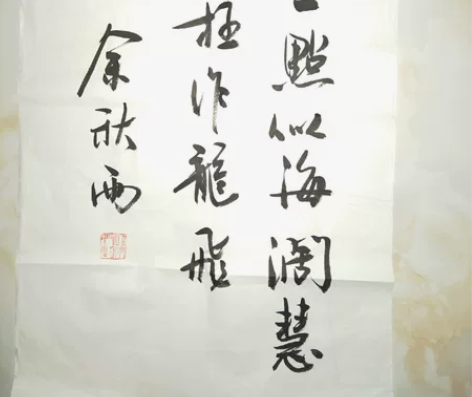 點似海濶慧
作龍飛
余秋雨